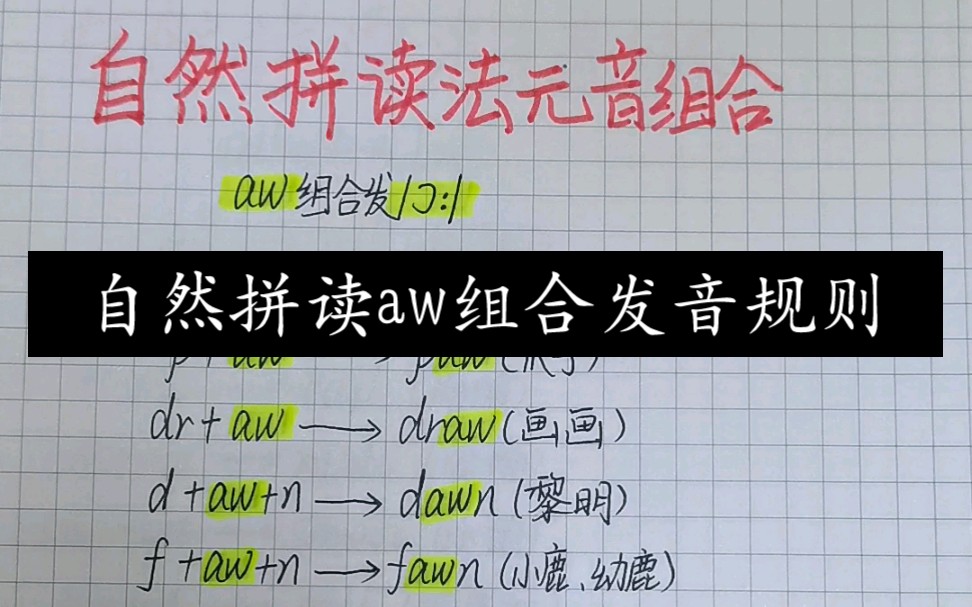 自然拼读法元音组合
aw组合发/ɔ:/
自然拼读aw组合发音规则
p+aw → paw
dr+aw → draw(画画)
d+aw+n → dawn(黎明)
f+aw+n → fawn(小鹿、幼鹿)